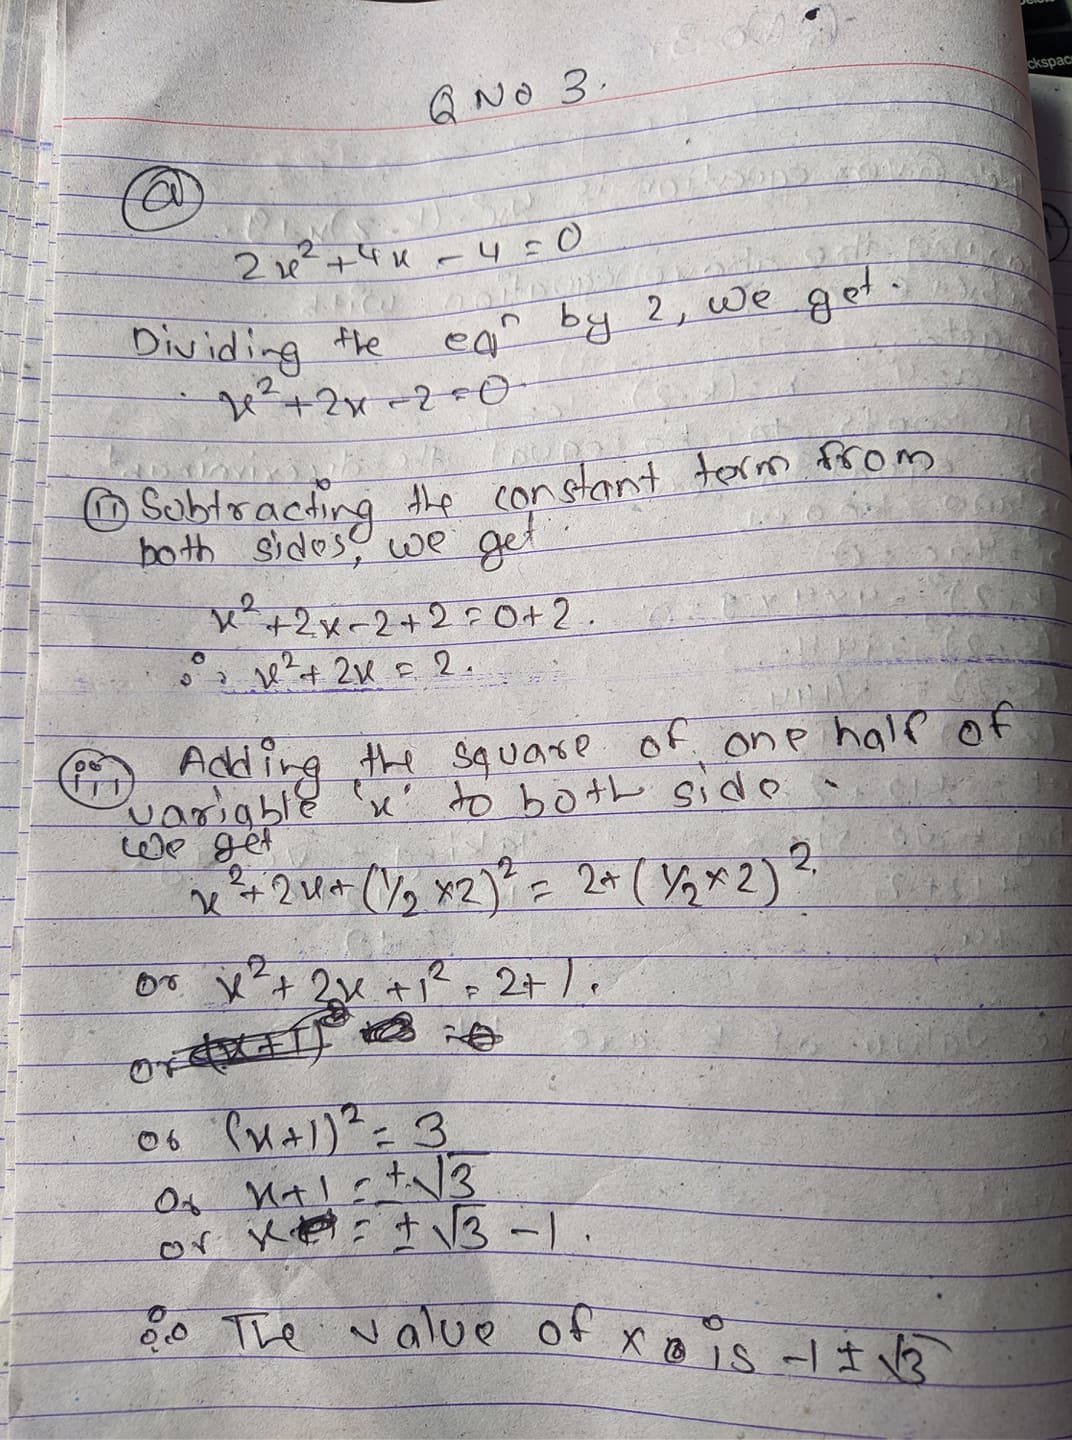 Q NO 3.
ⓐ
2x²+4x-4=0
Dividing the eqⁿ by 2, we get.
x²+2x-2=0
ⓘⓘ Subtracting the constant term from
both sides, we get
x²+2x-2+2=0+2.
∴ x²+2x=2.
ⓘⓘⓘ Adding the square of one half of
variable 'x' to both side.
we get
x²+2x+(1/2×2)²=2+(1/2×2)²
or x²+2x+1²=2+1.
or
or (x+1)²=3
or x+1=±√3
or x=±√3-1.
∴ The value of x is -1±√3